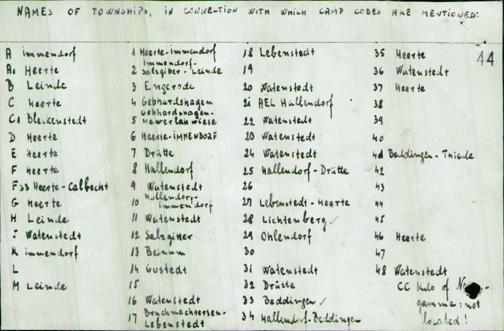 NAMES OF TOWNSHIPS, IN CONNECTION WITH WHICH CAMP CODES ARE MENTIONED:
44
A immendorf
A1 Heerte
B Leinde
C Heerte
C1 Bleckenstedt
D Heerte
E Heerte
F Heerte
Heerte-Calbecht
G Heerte
H Leinde
Watenstedt
K immendorf
L
M Leinde
1 Heerte-immendorf
2 immendorf-
Salzgitter-Leinde
3 Engerode
4 Gebhardshagen
5 Gebhardshagen-
6 Heerte-IMMENDORF
7 Drütte
8 Hallendorf
9 Watenstedt
10 Hallendorf-
immendorf
11 Watenstedt
12 Salzgitter
13 Beinum
14 Gustedt
15
16 Watenstedt
17 Bruchmachtersen-
Lebenstedt
18 Lebenstedt
19
20 Watenstedt
21 AEL Hallendorf
22 Watenstedt
23 Watenstedt
24 Watenstedt
25 Hallendorf-Drütte
26
27 Lebenstedt-Heerte
28 Lichtenberg
29 Ohlendorf
30
31 Watenstedt
32 Drütte
33 Beddingen
34 Hallendorf-Beddingen
35 Heerte
36 Watenstedt
37 Heerte
38
39
40
41 Beddingen-Thiede
42
43
44
45
46 Heerte
47
48 Watenstedt
CC Kdo of
gamme: not
located!